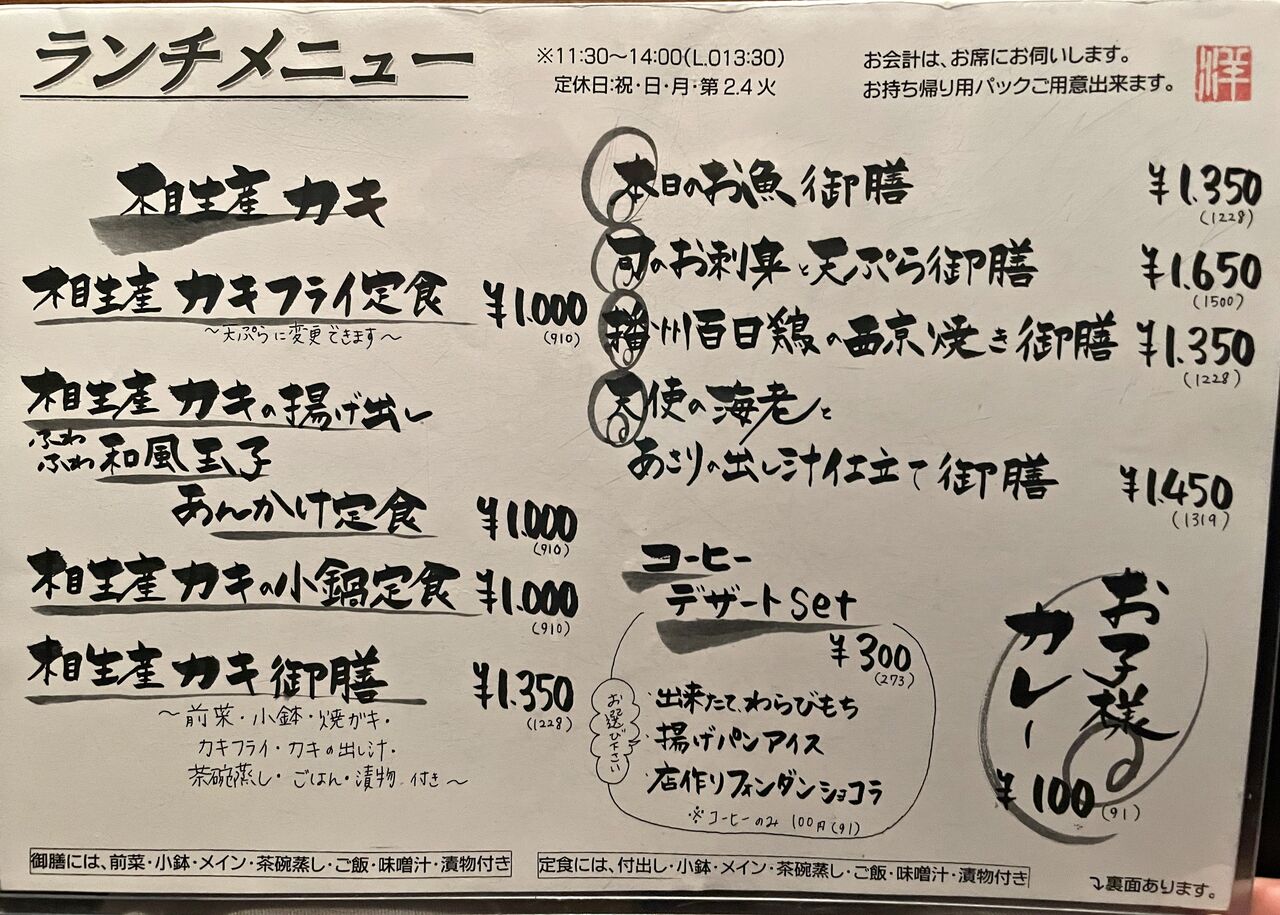 ランチメニュー
※11:30～14:00(L.O13:30)
定休日:祝・日・月・第2.4火
お会計は、お席にお伺いします。
お持ち帰り用パックご用意出来ます。
洋
相生産 カキ
相生産 カキフライ定食 ¥1.000
(910)
～天ぷらに変更できます～
相生産 カキの揚げ出し
ふわふわ 和風玉子
あんかけ定食 ¥1.000
(910)
相生産 カキの小鍋定食 ¥1.000
(910)
相生産 カキ 御膳 ¥1.350
(1228)
～前菜・小鉢・焼ガキ・
カキフライ・カキの出し汁・
茶碗蒸し・ごはん・漬物 付き～
本日のお魚御膳 ¥1.350
(1228)
旬のお刺身と天ぷら御膳 ¥1.650
(1500)
播州百日鶏の西京焼き御膳 ¥1.350
(1228)
天使の海老と
あさりの出し汁仕立て御膳 ¥1.450
(1319)
コーヒー
デザートset
¥300
(273)
お選び下さい
・出来たて、わらびもち
・揚げパンアイス
・店作りフォンダンショコラ
※コーヒーのみ 100円(91)
お子様
カレー
¥100 (91)
御膳には、前菜・小鉢・メイン・茶碗蒸し・ご飯・味噌汁・漬物付き
定食には、付出し・小鉢・メイン・茶碗蒸し・ご飯・味噌汁・漬物付き
裏面あります。